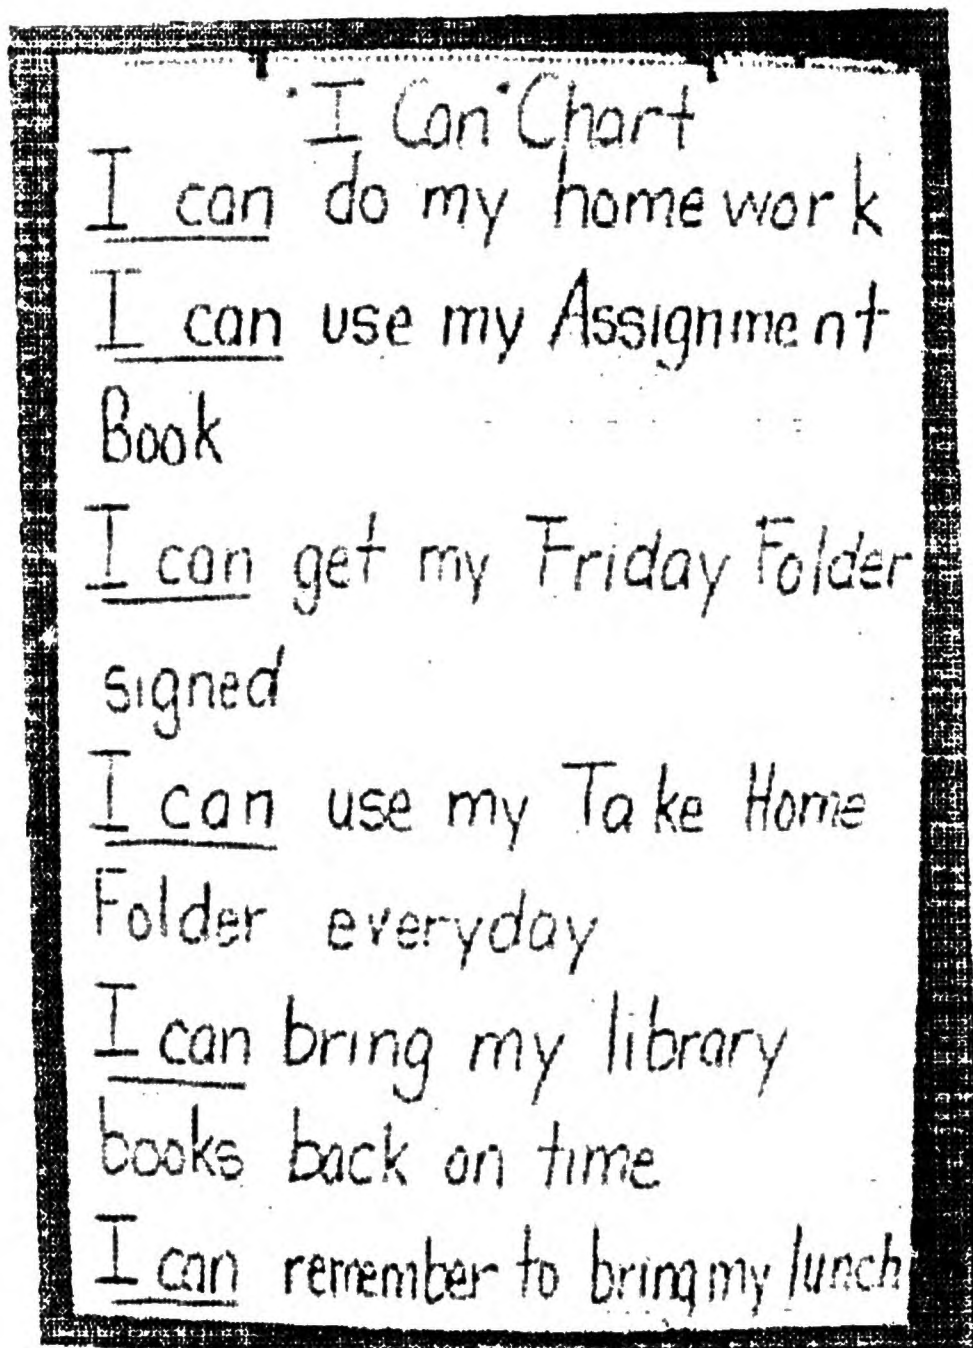 "I Can" Chart
I can do my homework
I can use my Assignment
Book
I can get my Friday Folder
signed
I can use my Take Home
Folder everyday
I can bring my library
books back on time
I can remember to bring my lunch